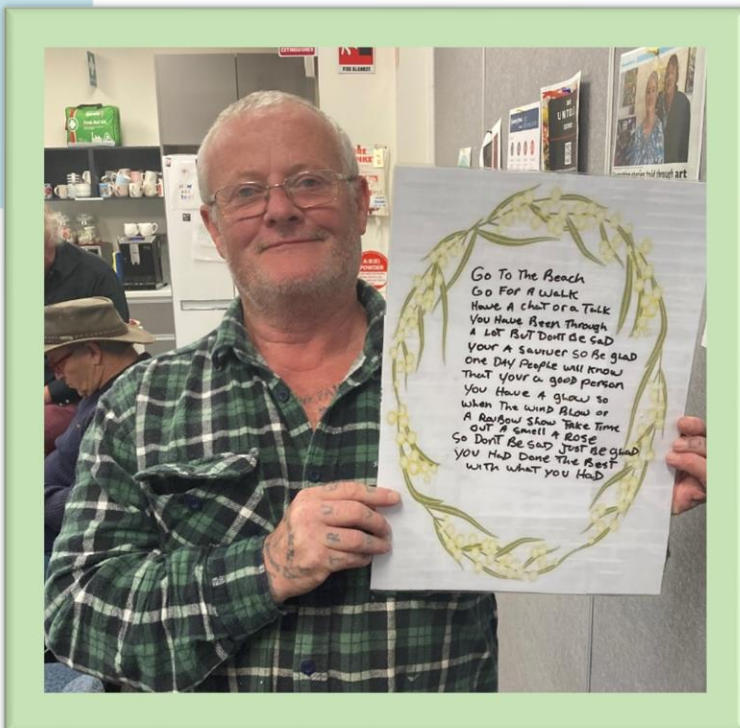 EXTINGUISHER
FIRE BLANKET
A:B(E)
POWDER
UNTOLD
told through art
Go To The Beach
Go For A Walk
Have A chat or a Talk
You Have Been Through
A Lot But Dont Be SaD
your A saviuer so Be glad
one DAY People will know
That your a good person
You Have A glow so
when The wind Blow or
A RaiBow show Take Time
out A smell A Rose
So Dont Be SaD Just Be glaD
you HaD Done The Best
with what you HaD